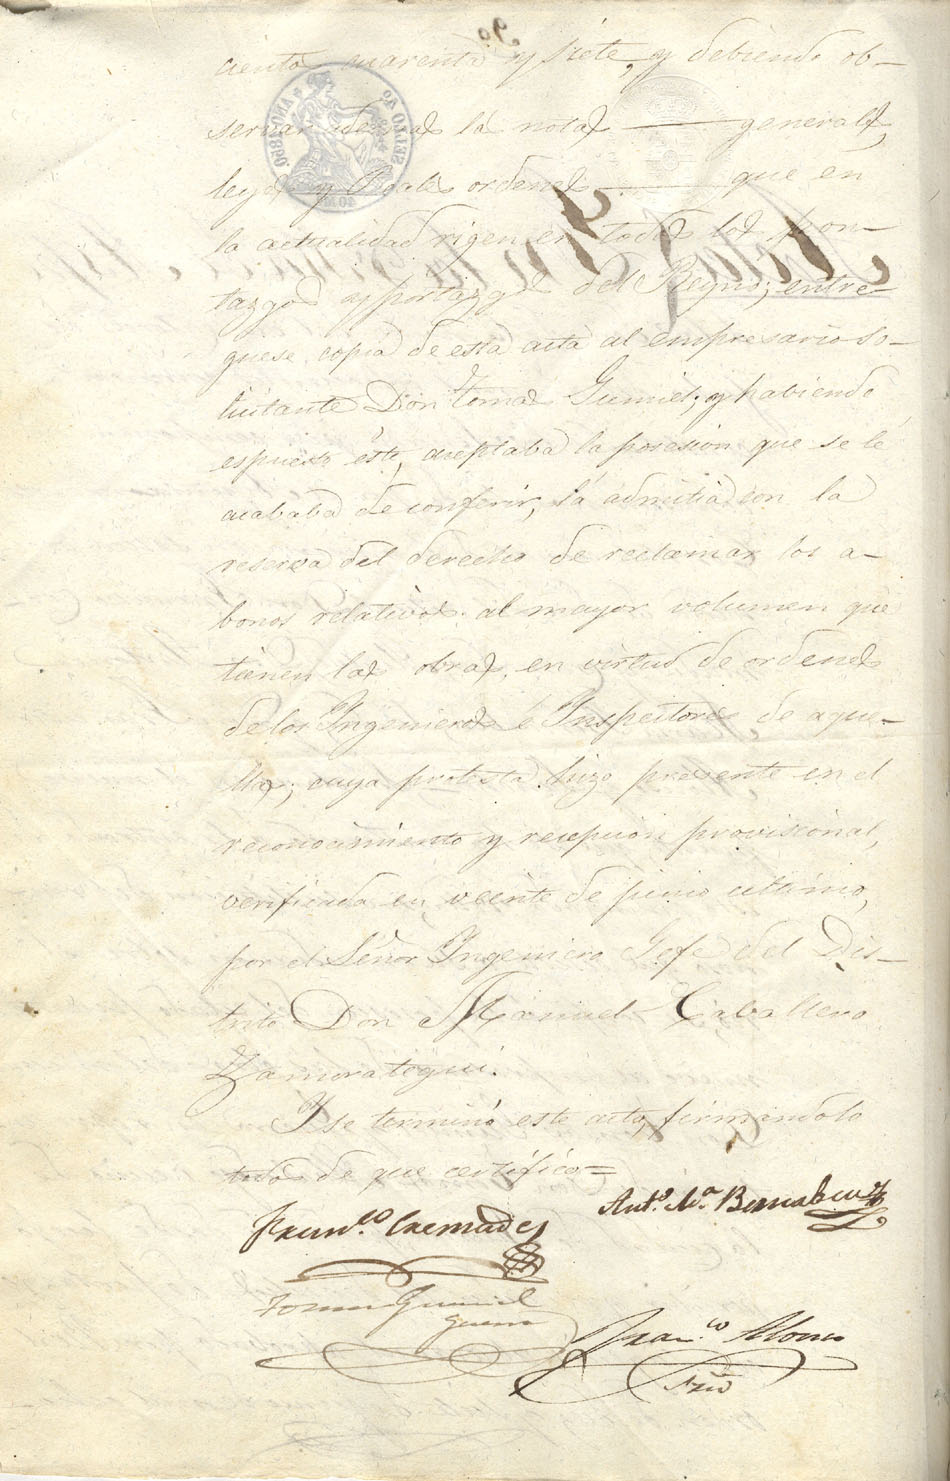 ciento cuarenta y siete, y debiendo ob-
servar ademas las notas ——— generales,
leyes y Reales ordenes ——— que en
la actualidad rigen en todos los pon-
tazgos y portazgos del Reyno; entre-
guese copia de esta acta al empresario so-
licitante Don Tomas Gumiel; y habiendo
espuesto éste, aceptaba la posesion que se le
acababa de conferir, la admitia con la
reserva del derecho de reclamar los a-
bonos relativos al mayor volumen que
tienen las obras, en virtud de ordenes
de los Ingenieros é Inspectores de aque-
llas; cuya protesta hizo presente en el
reconocimiento y recepcion provisional,
verificada en veinte de junio ultimo,
por el Señor Ingeniero Gefe del Dis-
trito Don Manuel Caballero
Zamorategui.
Y se terminó este acto, firmandolo
todos de que certifico=
Antº. Mª. Bernabeu
Franco. Cremades
Tomas Gumiel
Franco. Alonso
SELLO 4º
AÑO 1860.
40 Ms